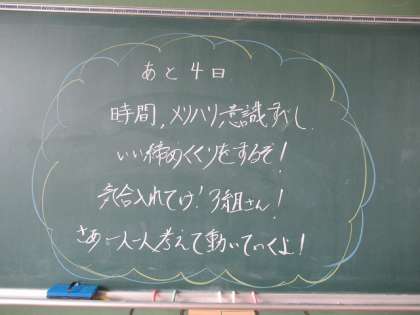 あと4日
時間,メリハリ意識すべし
いい締めくくりをするぞ!
気合入れてけ!3組さん!
さあ一人一人考えて動いていくよ!